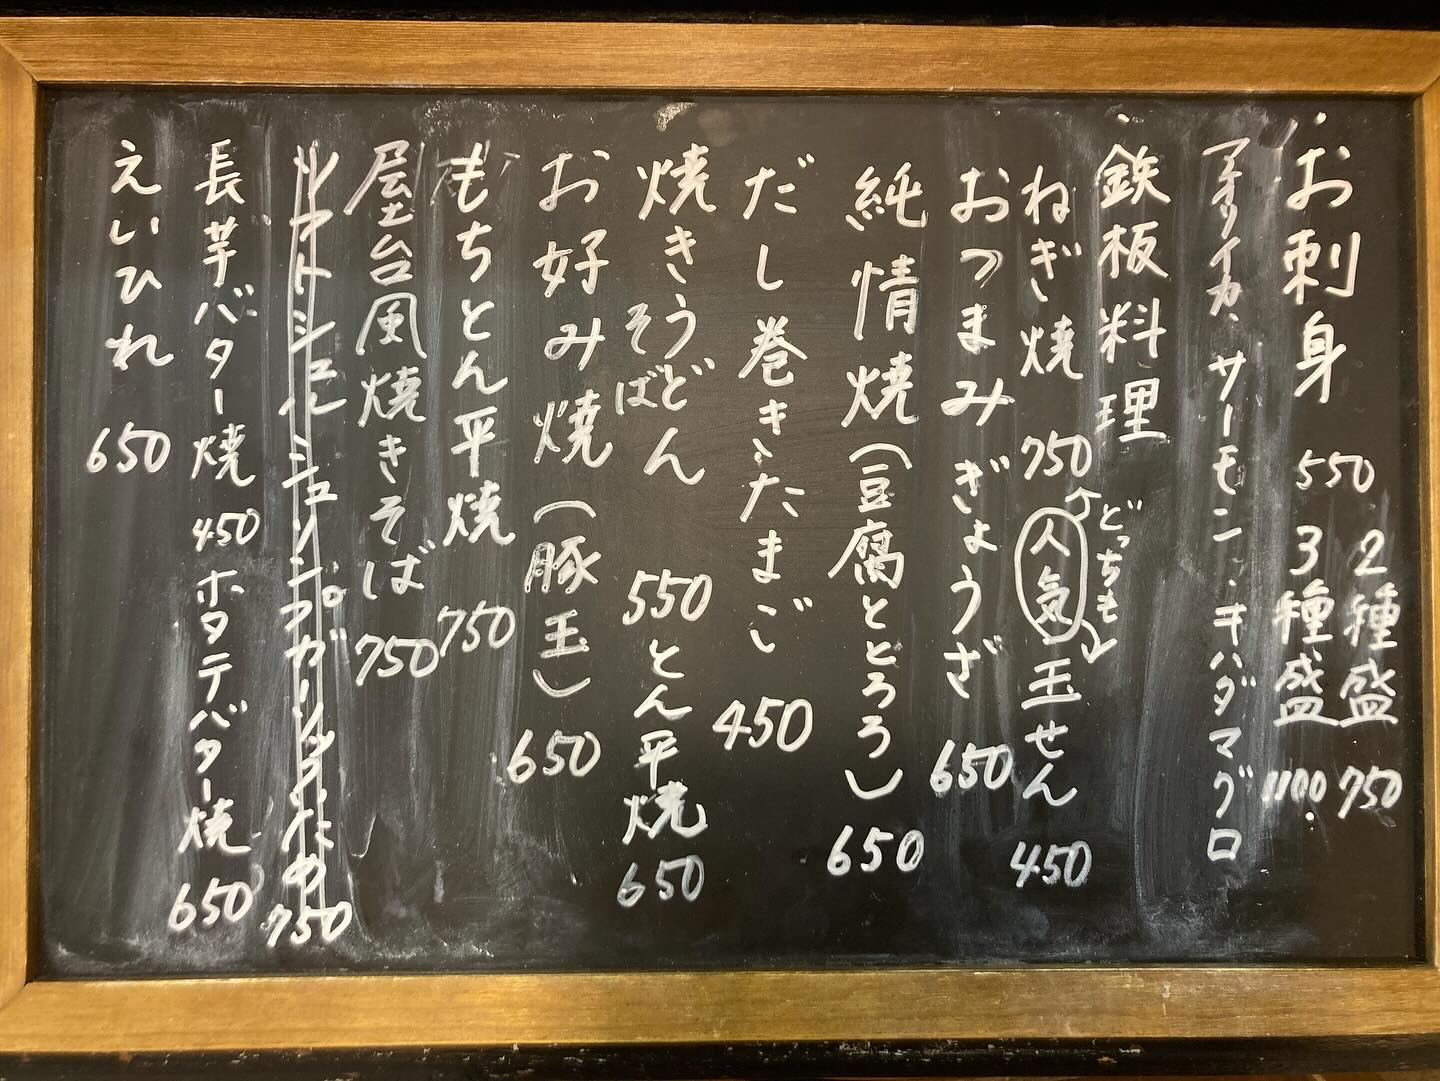 お刺身 550 2種盛 750
3種盛 1100
アオリイカ、サーモン、キハダマグロ
鉄板料理
どっちも
ねぎ焼 750 人気 玉せん 450
おつまみぎょうざ 650
純情焼(豆腐ととろろ) 650
だし巻きたまご 450
焼きうどん 550 とん平焼 650
そば
お好み焼(豚玉) 650
もちとん平焼 750
屋台風焼きそば 750
ソフトシェルシュリンプガーリック炒め 750
長芋バター焼 450 ホタテバター焼 650
えいひれ 650